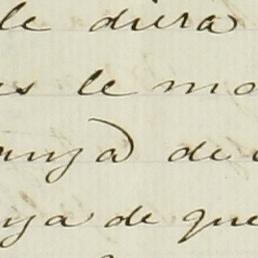 le diera
es le mo
unza de
ya de que